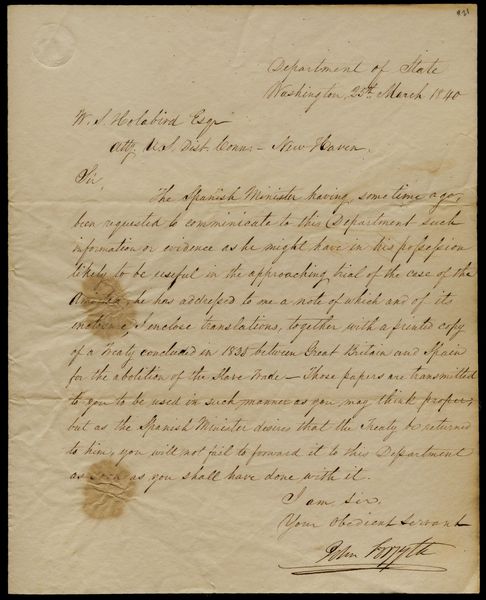 Department of State
Washington, 25th March 1840
W. S. Holabird Esqr
Atty. U.S. Dist. Conn: - New Haven.
Sir,
The Spanish Minister having, some time ago,
been requested to comminicate to this Department such
information or evidence as he might have in his possession
likely to be useful in the approaching trial of the case of the
Amistad, he has addressed to me a note of which and of its
enclosure I enclose translations, together with a printed copy
of a Treaty concluded in 1835 between Great Britain and Spain
for the abolition of the Slave Trade - Those papers are transmitted
to you to be used in such manner as you may think proper;
but as the Spanish Minister desires that the Treaty be returned
to him, you will not fail to forward it to this Department
as soon as you shall have done with it.
I am sir,
Your obedient servant
John Forsyth